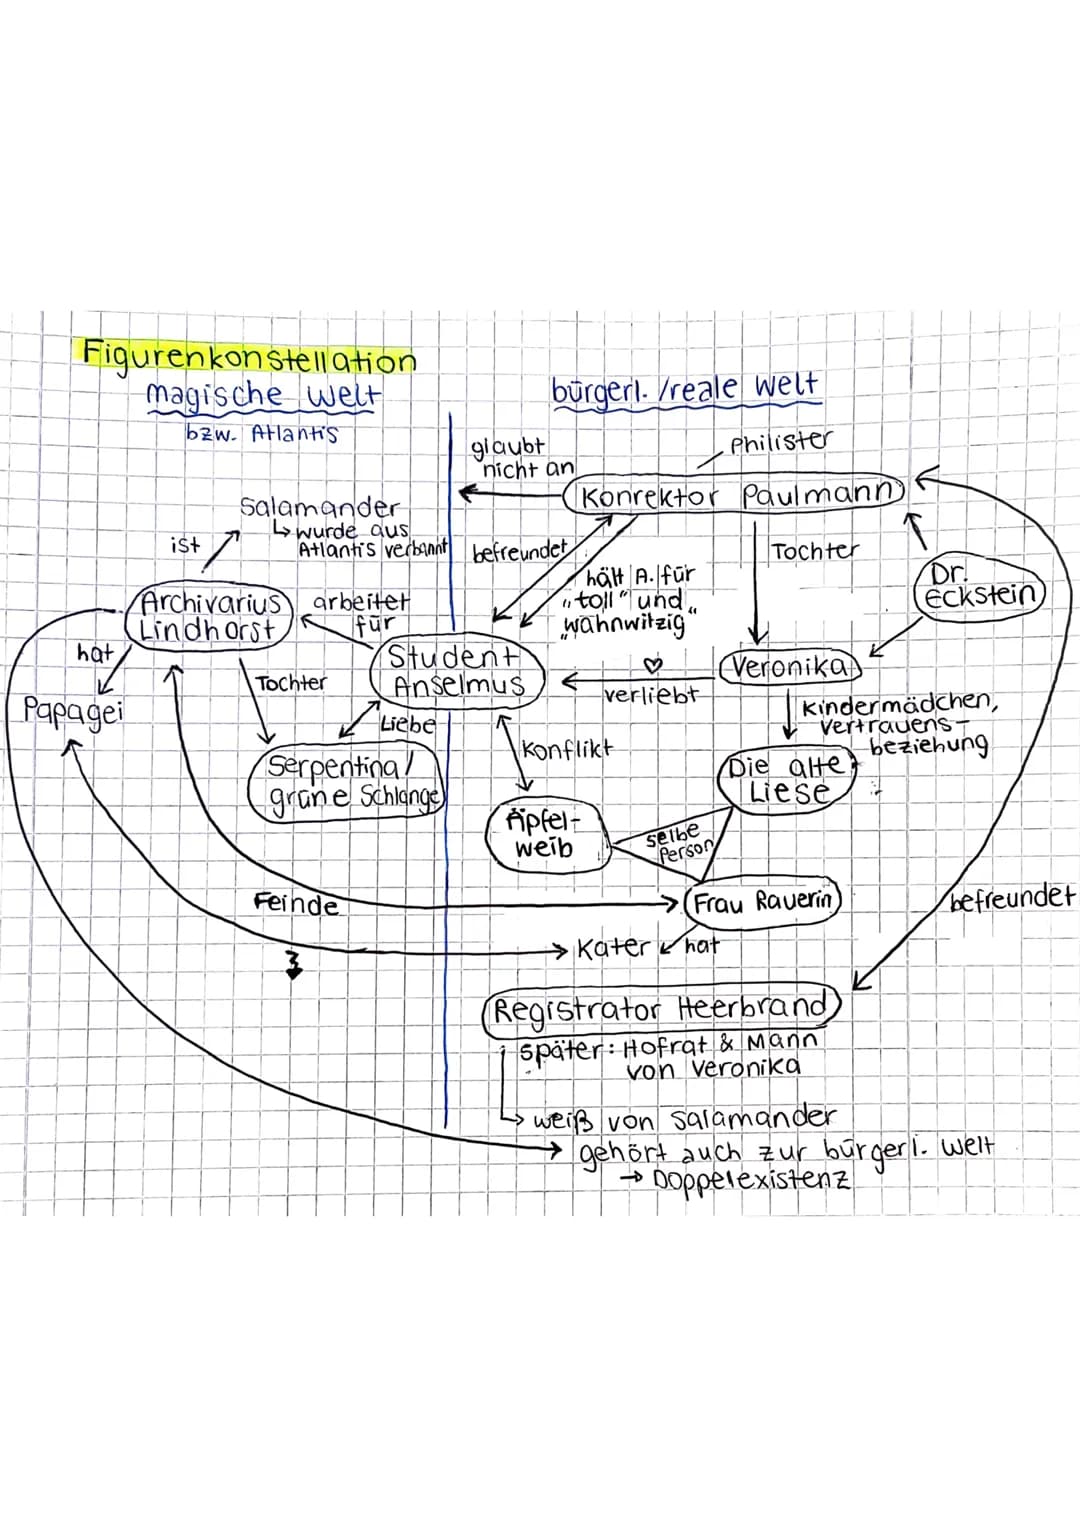 Figurenkonstellation
magische Welt
bzw. Atlantis
bürgerl. /reale Welt
glaubt
nicht an
Philister
Konrektor Paulmann
Salamander
↳ wurde aus
Atlantis verbannt
ist
befreundet
Tochter
hält A. für
„toll“ und
„wahnwitzig“
Dr.
Eckstein
Archivarius
Lindhorst
arbeitet
für
hat
Papagei
Tochter
Student
Anselmus
Liebe
♡
verliebt
Veronika
Kindermädchen,
Vertrauens-
beziehung
Konflikt
Serpentina/
grüne Schlange
Die alte
Liese
Äpfel-
weib
selbe
Person
Feinde
Frau Rauerin
befreundet
Kater
hat
Registrator Heerbrand
später: Hofrat & Mann
von Veronika
↳ weiß von Salamander
→ gehört auch zur bürgerl. Welt
→ Doppelexistenz